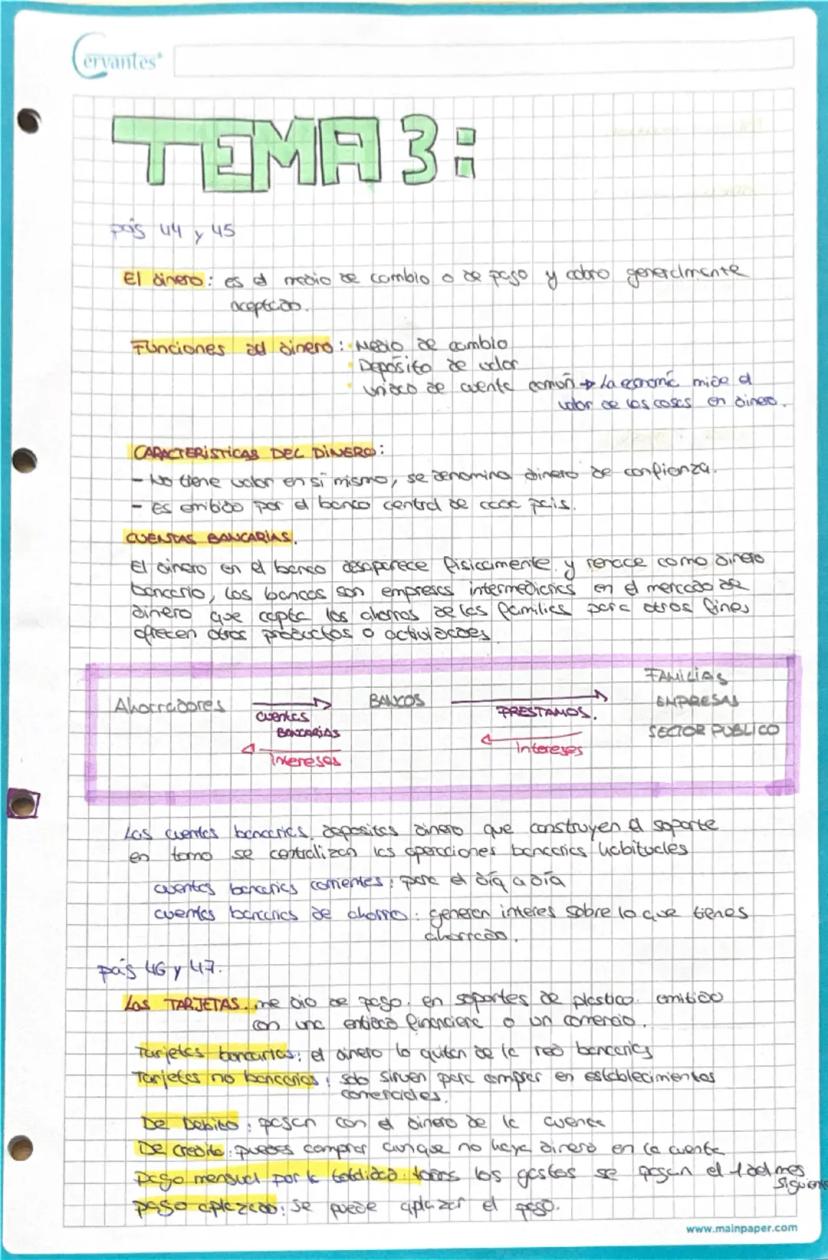 Cervantes
TEMA 3:
pág 44 y 45
El dinero: es el medio de cambio o de pago y cobro generalmente
aceptado.
Funciones del dinero: · Medio de cambio
· Depósito de valor
· unidad de cuenta común → la economía mide el
valor de las cosas en dinero.
CARACTERISTICAS DEL DINERO:
- No tiene valor en sí mismo, se denomina dinero de confianza.
- Es emitido por el banco central de cada país.
CUENTAS BANCARIAS.
El dinero en el banco desaparece fisicamente y renace como dinero
bancario, los bancos son empresas intermediarias en el mercado de
dinero que capta los ahorros de las familias para otros fines
ofrecen otros productos o actividades
Ahorradores → BANCOS → FAMILIAS
EMPRESAS
SECTOR PUBLICO
cuentas
BANCARIAS
PRESTAMOS.
← Intereses
← Intereses
Las cuentas bancarias. depositas dinero que construyen el soporte
en torno se centralizan las operaciones bancarias habituales
cuentas bancarias corrientes: para el día a día
cuentas bancarias de ahorro: generan interes sobre lo que tienes
ahorrado.
pág 46 y 47.
Las TARJETAS. medio de pago. en soportes de plastico. emitido
con una entidad financiera o un comercio.
Tarjetas bancarias: el dinero lo quitan de la red bancaria
Tarjetas no bancarias: solo sirven para comprar en establecimientos
comerciales.
De Debito: pagan con el dinero de la cuenta
De credito: puedes comprar aunque no haya dinero en la cuenta
pago mensual por la totalidad: todos los gastos se pagan el 1 del mes
siguiente
pago aplazado: se puede aplazar el pago.
www.mainpaper.com